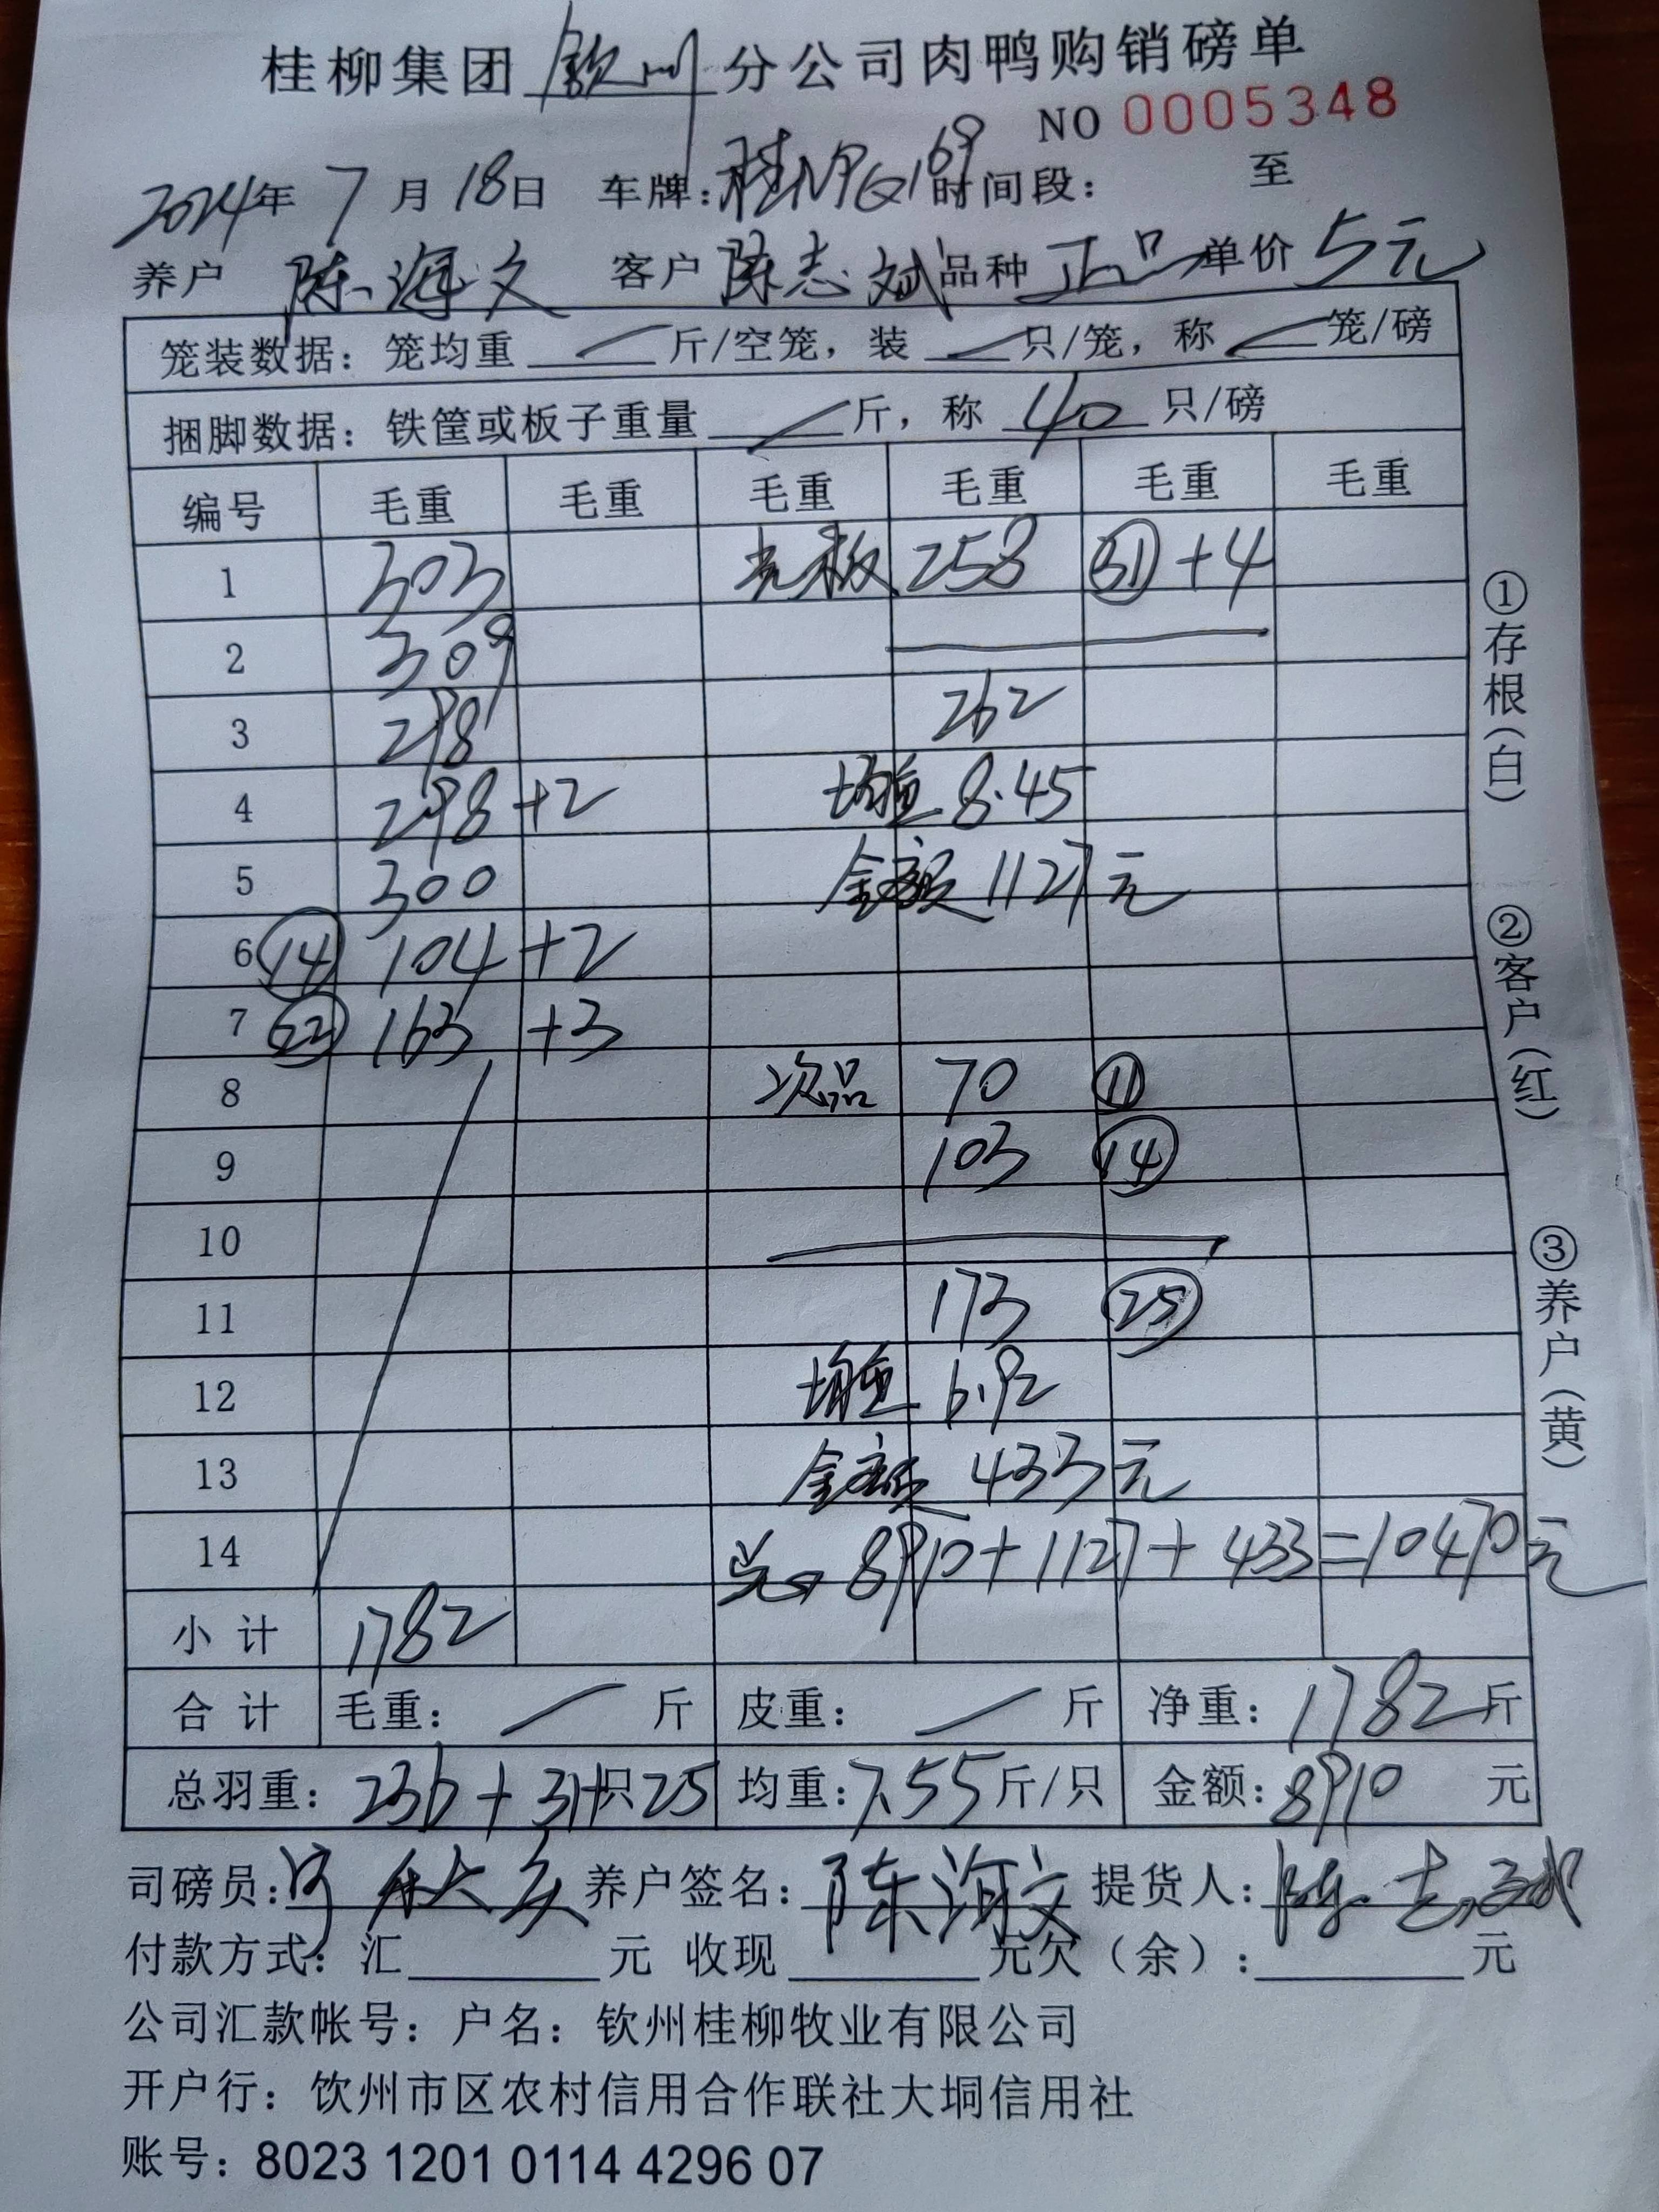 桂柳集团钦州分公司肉鸭购销磅单
NO 0005348
2024年 7 月 18日 车牌:桂NPG169 时间段: 至
养户 陈海文 客户 陈志斌 品种 正品 单价 5元
笼装数据: 笼均重 — 斤/空笼, 装 — 只/笼, 称 — 笼/磅
捆脚数据: 铁筐或板子重量 — 斤, 称 40 只/磅
编号 毛重 毛重 毛重 毛重 毛重 毛重
1 303 光板 258 ㉛ +4
2 309
3 298 262
4 298 +2 均重 8.45
5 300 金额 1127元
6 ⑭ 104 +2
7 ㉒ 163 +3
8 次品 70 ⑪
9 103 ⑭
10
11 173 ㉕
12 均重 6.92
13 金额 433元
14 总→ 8910+1127+433=10470元
小 计 1782
合 计 毛重: — 斤 皮重: — 斤 净重: 1782斤
总羽重: 236+31+只25 均重:7.55斤/只 金额:8910 元
司磅员: 养户签名: 陈海文 提货人: 陈志斌
付款方式: 汇 元 收现 元欠(余): 元
公司汇款帐号: 户名: 钦州桂柳牧业有限公司
开户行: 钦州市区农村信用合作联社大垌信用社
账号: 8023 1201 0114 4296 07
①存根(白)
②客户(红)
③养户(黄)